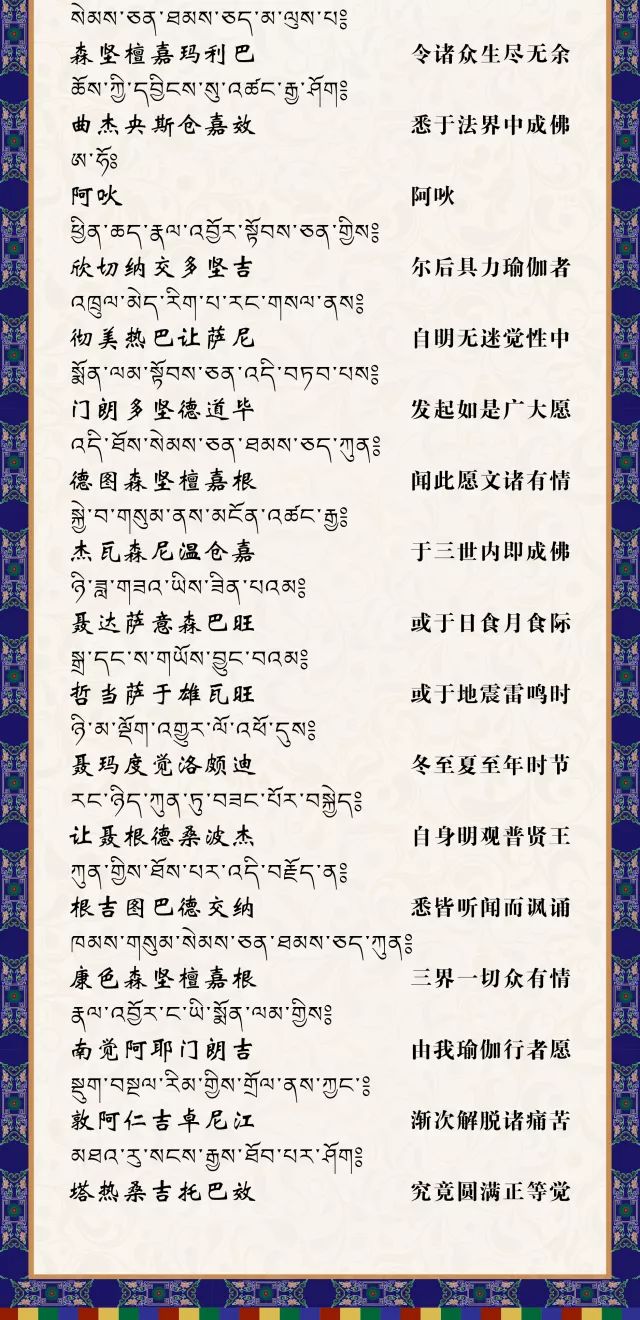 སེམས་ཅན་ཐམས་ཅད་མ་ལུས་པ༔
森坚檀嘉玛利巴 令诸众生尽无余
ཆོས་ཀྱི་དབྱིངས་སུ་འཚང་རྒྱ་ཤོག༔
曲杰央斯仓嘉效 悉于法界中成佛
ཨ་ཧོ༔
阿吙 阿吙
ཕྱིན་ཆད་རྣལ་འབྱོར་སྟོབས་ཅན་གྱིས༔
欣切纳交多坚吉 尔后具力瑜伽者
འཁྲུལ་མེད་རིག་པ་རང་གསལ་ནས༔
彻美热巴让萨尼 自明无迷觉性中
སྨོན་ལམ་སྟོབས་ཅན་འདི་བཏབ་པས༔
门朗多坚德道毕 发起如是广大愿
འདི་ཐོས་སེམས་ཅན་ཐམས་ཅད་ཀུན༔
德图森坚檀嘉根 闻此愿文诸有情
སྐྱེ་བ་གསུམ་ནས་མངོན་འཚང་རྒྱ༔
杰瓦森尼温仓嘉 于三世内即成佛
ཉི་ཟླ་གཟའ་ཡིས་ཟིན་པའམ༔
聂达萨意森巴旺 或于日食月食际
སྒྲ་དང་ས་གཡོས་བྱུང་བའམ༔
哲当萨于雄瓦旺 或于地震雷鸣时
ཉི་མ་ལྡོག་འགྱུར་ལོ་འཕོ་དུས༔
聂玛度觉洛颇迪 冬至夏至年时节
རང་ཉིད་ཀུན་ཏུ་བཟང་པོར་བསྐྱེད༔
让聂根德桑波杰 自身明观普贤王
ཀུན་གྱིས་ཐོས་པར་འདི་བརྗོད་ན༔
根吉图巴德交纳 悉皆听闻而讽诵
ཁམས་གསུམ་སེམས་ཅན་ཐམས་ཅད་ཀུན༔
康色森坚檀嘉根 三界一切众有情
རྣལ་འབྱོར་ང་ཡི་སྨོན་ལམ་གྱིས༔
南觉阿耶门朗吉 由我瑜伽行者愿
སྡུག་བསྔལ་རིམ་གྱིས་གྲོལ་ནས་ཀྱང་༔
敦阿仁吉卓尼江 渐次解脱诸痛苦
མཐའ་རུ་སངས་རྒྱས་ཐོབ་པར་ཤོག༔
塔热桑吉托巴效 究竟圆满正等觉